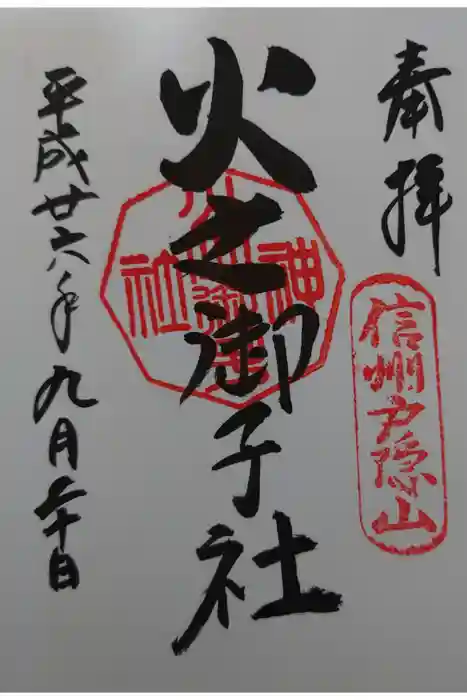 奉拝
信州戸隠山
火之御子社
平成廿六年九月二十日